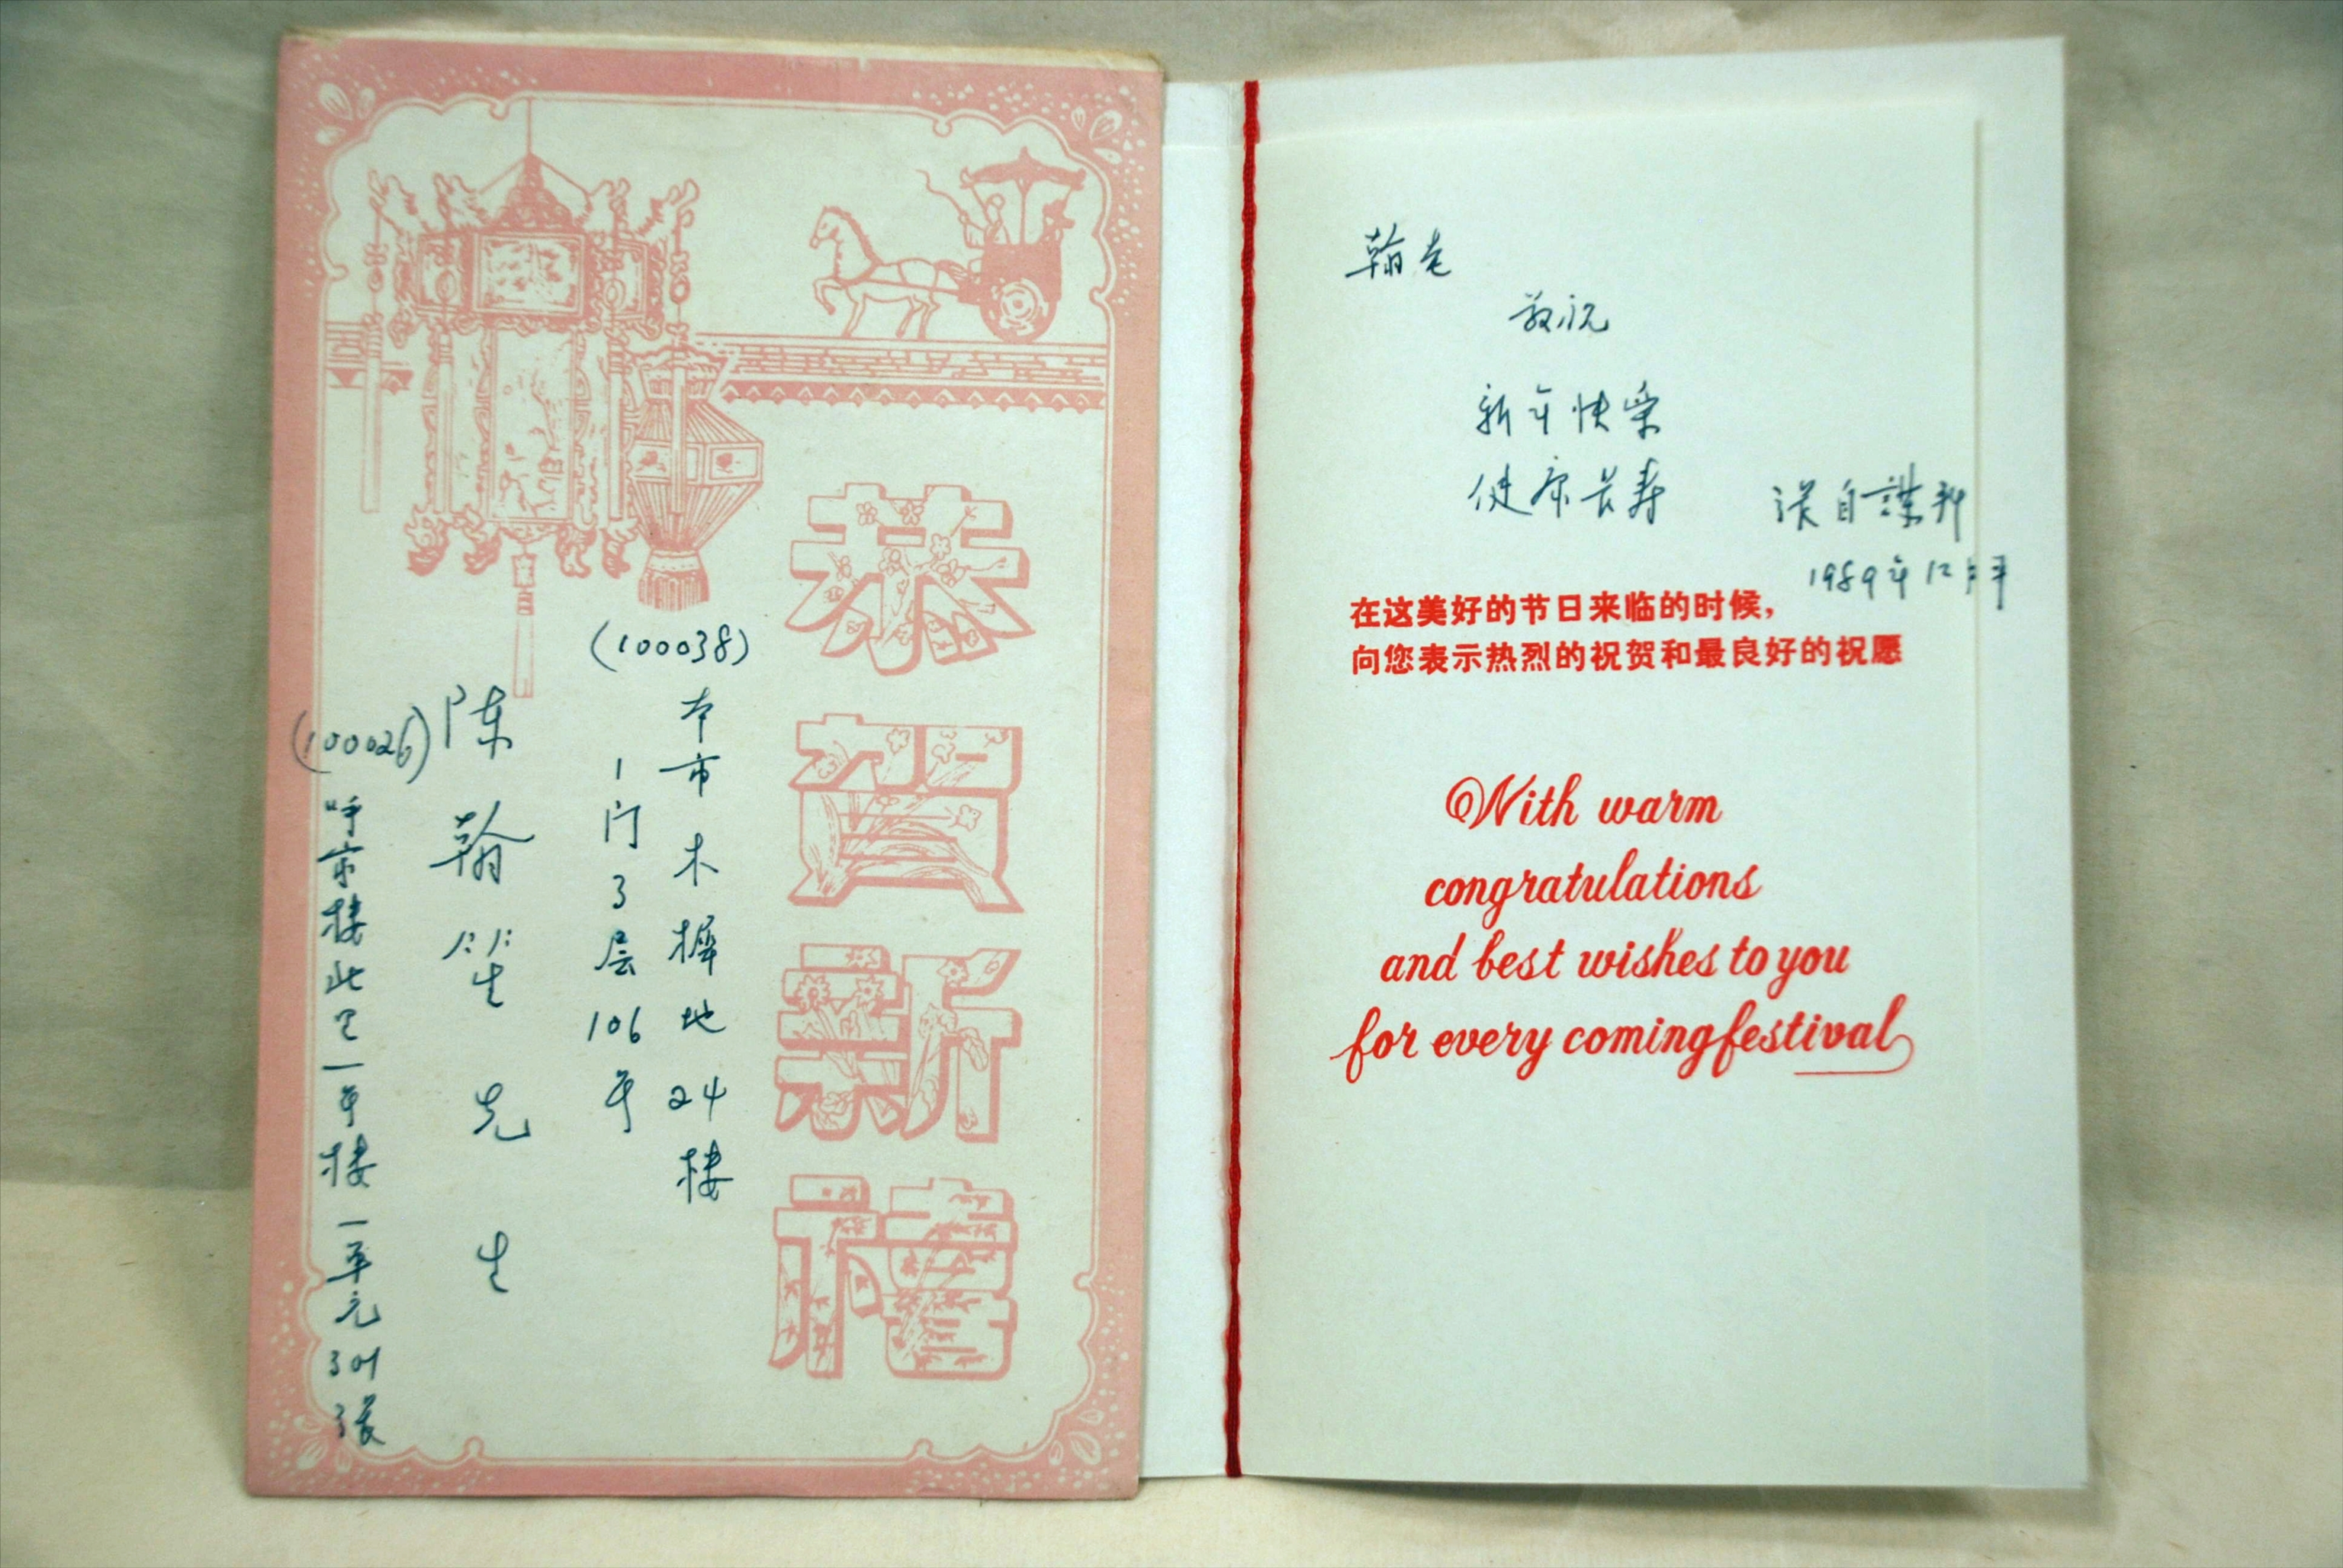 恭賀新禧
(100038)
本市木樨地24楼
1门3层106号
陈翰笙先生
(100026)
呼家楼北里一号楼一单元301张
翰老
敬祝
新年快樂
健康长寿
张自謀
1989年12月
在这美好的节日来临的时候，
向您表示热烈的祝贺和最良好的祝愿
With warm
congratulations
and best wishes to you
for every coming festival